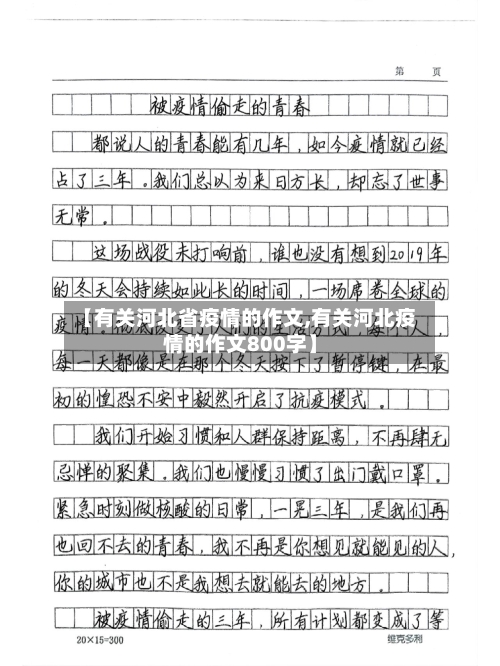 第 页
被疫情偷走的青春
都说人的青春能有几年,如今疫情就已经
占了三年。我们总以为来日方长,却忘了世事
无常。
这场战役未打响前,谁也没有想到2019年
的冬天会持续如此长的时间,一场席卷全球的
【有关河北省疫情的作文,有关河北疫
情的作文800字】
疫情彻底改变了人们的生活方式,每个人,
每一天都像是在那个冬天按下了暂停键,在最
初的惶恐不安中毅然开启了抗疫模式。
我们开始习惯和人群保持距离,不再肆无
忌惮的聚集。我们也慢慢习惯了出门戴口罩。
紧急时刻做核酸的日常,一晃三年,是我们再
也回不去的青春,我不再是你想见就能见的人,
你的城市也不是我想去就能去的地方。
被疫情偷走的三年,所有计划都变成了等
20×15=300 维克多利